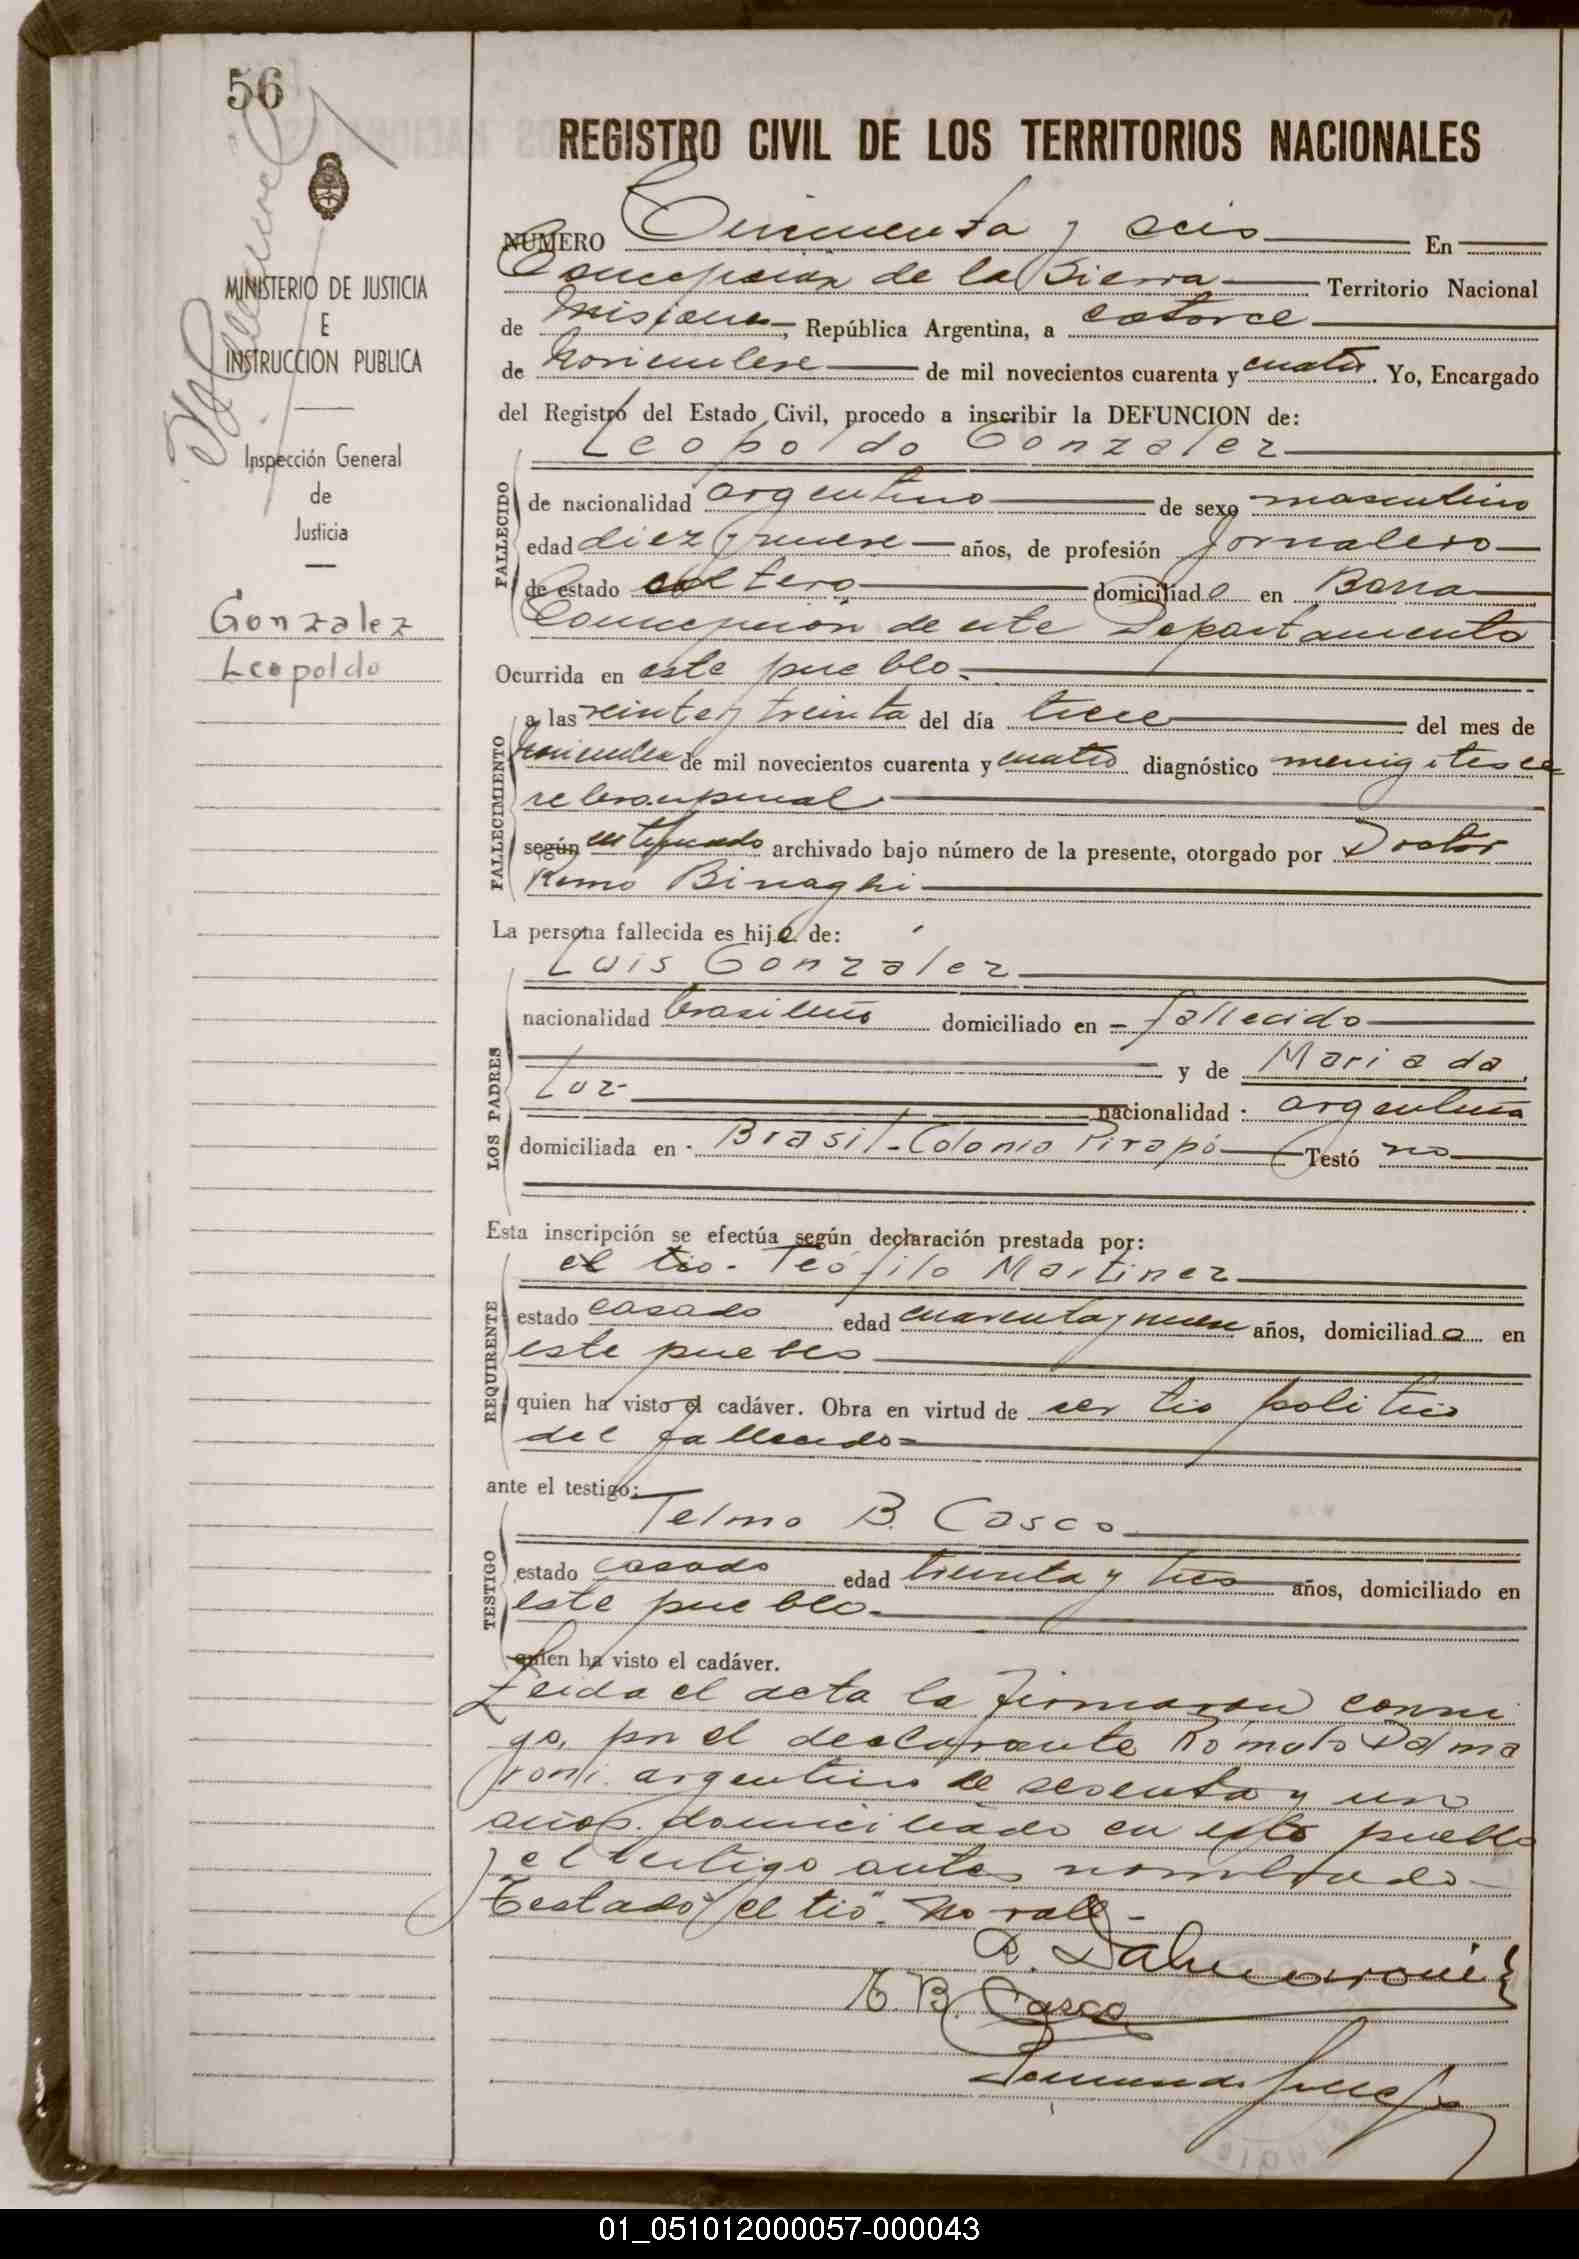 56
REGISTRO CIVIL DE LOS TERRITORIOS NACIONALES
MINISTERIO DE JUSTICIA
E
INSTRUCCION PUBLICA
Inspección General
de
Justicia
Gonzalez
Leopoldo
NUMERO Cincuenta y seis En
Concepción de la Sierra Territorio Nacional
de Misiones, República Argentina, a catorce
de noviembre de mil novecientos cuarenta y cuatro. Yo, Encargado
del Registro del Estado Civil, procedo a inscribir la DEFUNCION de:
Leopoldo Gonzalez
FALLECIDO
de nacionalidad argentino de sexo masculino
edad diez y nueve años, de profesión jornalero
de estado soltero domiciliado en Barra
Concepción de este Departamento
Ocurrida en este pueblo.
FALLECIMIENTO
a las veinte y treinta del día trece del mes de
noviembre de mil novecientos cuarenta y cuatro diagnóstico menigitis ce
rebroespinal
según certificado archivado bajo número de la presente, otorgado por Doctor
Remo Binaghi
La persona fallecida es hijo de:
LOS PADRES
Luis Gonzalez
nacionalidad brasileño domiciliado en - fallecido
y de Maria da
Luz- nacionalidad: argentina
domiciliada en - Brasil-Colonia Pirapó Testó no
Esta inscripción se efectúa según declaración prestada por:
REQUIRENTE
el tio - Teófilo Martinez
estado casado edad cuarenta y nueve años, domiciliado en
este pueblo
quien ha visto el cadáver. Obra en virtud de ser tio politico
del fallecido=
ante el testigo:
TESTIGO
Telmo B. Casco
estado casado edad treinta y tres años, domiciliado en
este pueblo.
quien ha visto el cadáver.
Leida el acta la firmaron conmi
go, por el declarante Rómulo Dalma
roni. argentino de sesenta y un
años. domiciliado en este pueblo
y el testigo antes nombrado-
Testado "el tio". No vale-
R. Dalmaroni
T. B. Casco
01_051012000057-000043